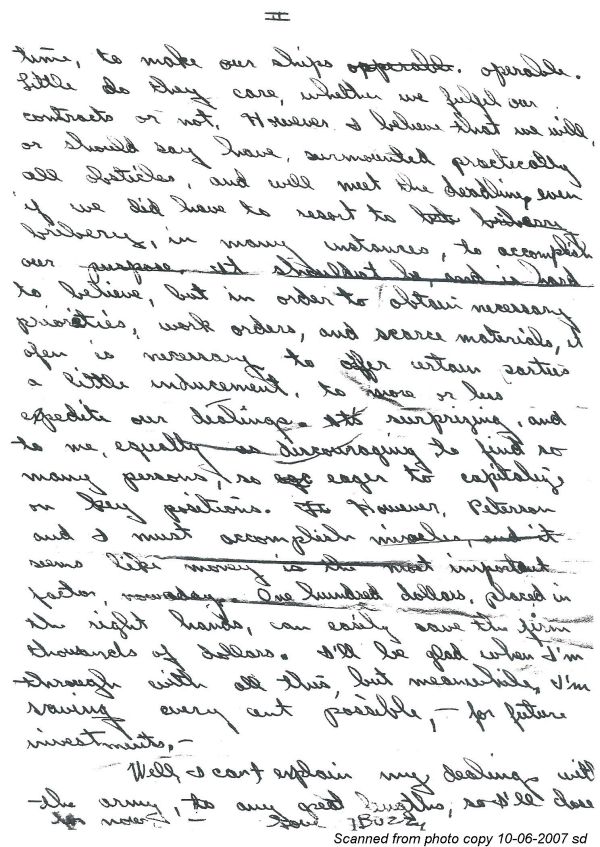 II
time, to make our ships opperabl. operable.
Little do they care, whether we fulfil our
contracts or not. However I believe that we will,
or should say have, surmounted practically
all obsticles, and will meet the deadline, even
if we did have to resort to bribarry
bribery, in many instances, to accomplish
our purpose. It shouldnt be, and is hard
to believe, but in order to obtain necessary
priorities, work orders, and scarce materials, it
often is necessary to offer certain parties
a little inducement, to more or less
expedite our dealings. Its surprizing, and
to me, equally as discouraging to find so
many persons, so eager to capitalize
on key positions. However, Peterson
and I must accomplish miracles, and it
seems like money is the most important
factor, nowaday. One hundred dollars, placed in
the right hands, can easily save the firm
thousands of dollars. I'll be glad when I'm
through with all this, but meanwhile, I'm
saving every cent possible, - for future
investments. -
Well, I cant explain my dealings with
the army, to any great lengths, so I'll close
for now. - Love Buzz
Scanned from photo copy 10-06-2007 sd